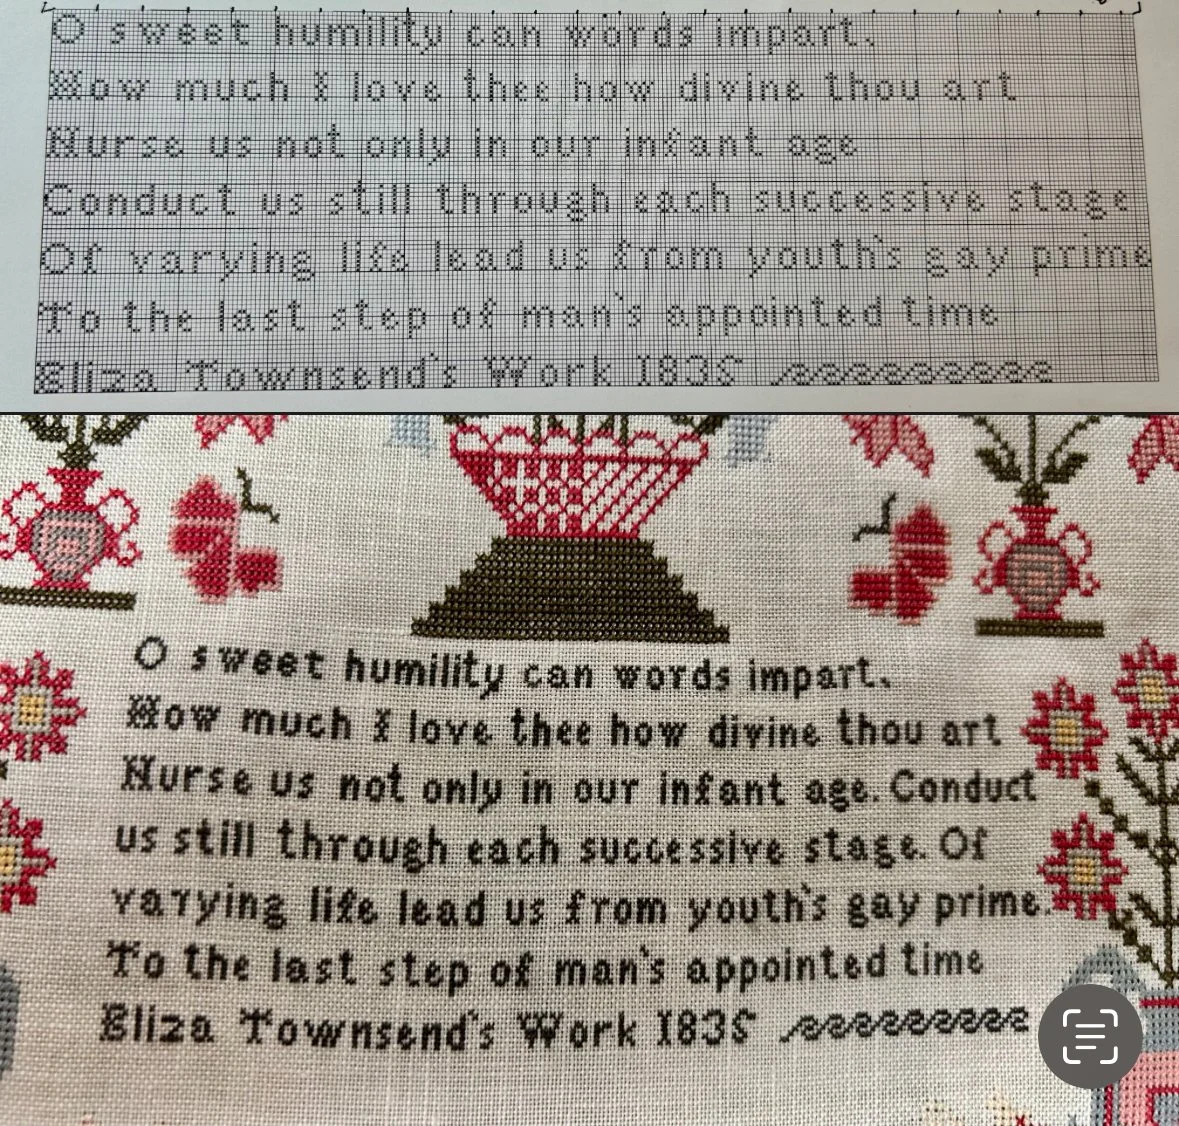 O sweet humility can words impart.
How much I love thee how divine thou art
Nurse us not only in our infant age
Conduct us still through each successive stage
Of varying life lead us from youth's gay prime
To the last step of man's appointed time
Eliza Townsend's Work 1835
O sweet humility can words impart.
How much I love thee how divine thou art
Nurse us not only in our infant age. Conduct
us still through each successive stage. Of
varying life lead us from youth's gay prime.
To the last step of man's appointed time
Eliza Townsend's Work 1835